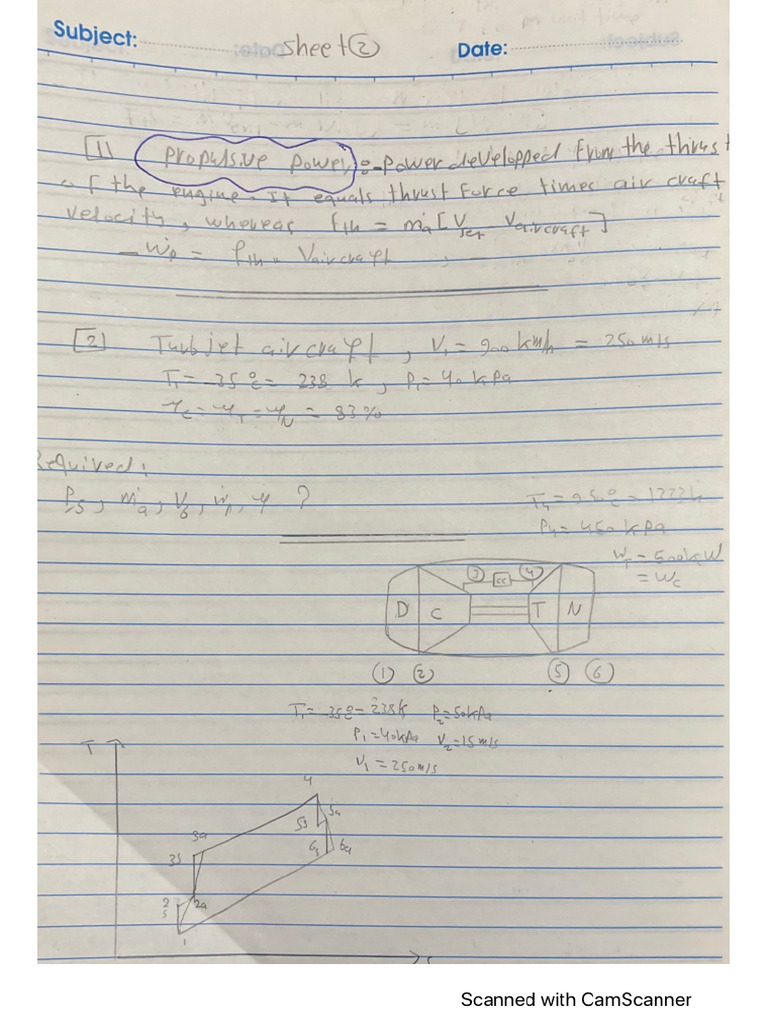 Subject: sheet② Date:
[1] propulsive power :- power developped from the thrust
of the engine. It equals thrust force times air craft
velocity, whereas Fth = ṁa [Vjet Vaircraft]
- Ẇp = Fth * Vaircraft
[2] Turbjet aircraft, V₁ = 900 km/h = 250 m/s
T₁ = -35 °c = 238 k, P₁ = 40 kPa
ηc = ηT = ηN = 83%
Required:
P5, ṁa, V6, ẇp, η ?
T4 = 950°c = 1223k
P4 = 450 kPa
WT = 500kW
= Wc
③ cc ④
D C T N
① ② ⑤ ⑥
T₁ = -35°c = 238k P₂ = 50kPa
P₁ = 40kPa V₂ = 15 m/s
V₁ = 250 m/s
T
4
5a
5s
3a
3s
6s 6a
2s
2a
1
s
Scanned with CamScanner